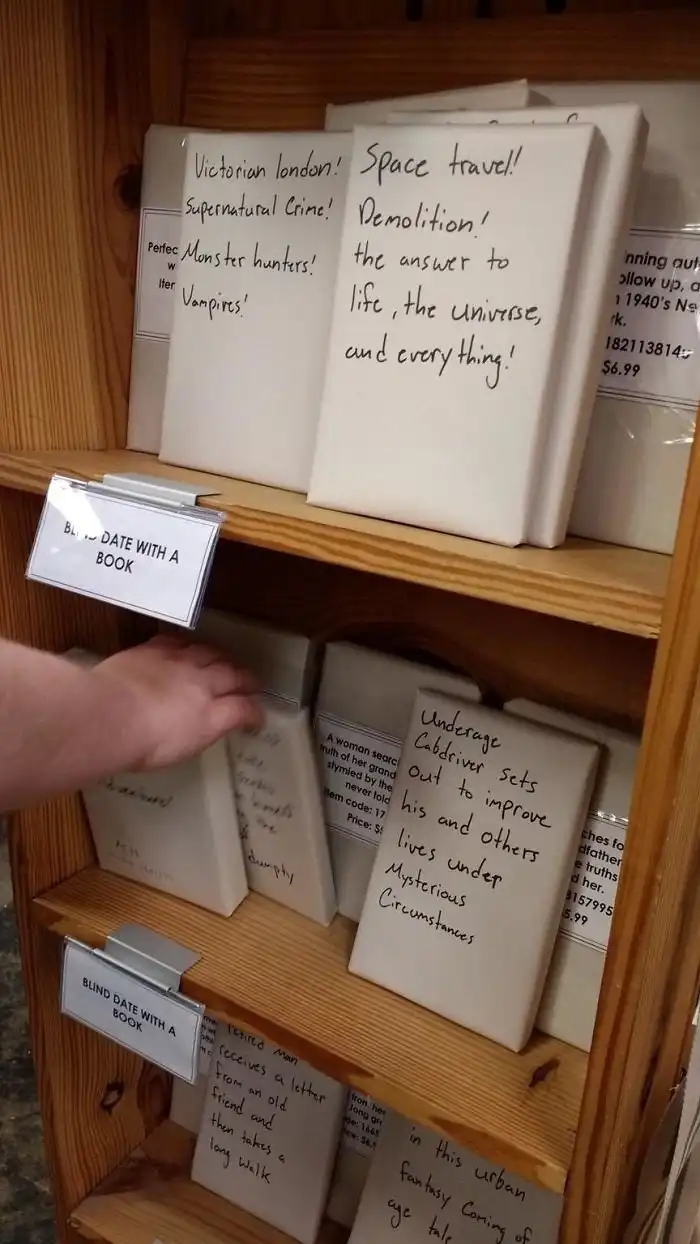 Victorian london!
Supernatural Crime!
Monster hunters!
Vampires!
Space travel!
Demolition!
the answer to
life, the universe,
and everything!
Perfec
w
Iter
nning aut
ollow up, a
1940's Ne
rk.
182113814
$6.99
BLIND DATE WITH A
BOOK
A woman searc
truth of her grand
stymied by the
never told
Item code: 17
Price: $
Dumpty
Underage
Cabdriver Sets
out to improve
his and others
lives under
Mysterious
Circumstances
ches fo
dfather
e truths
d her.
8157995
5.99
BLIND DATE WITH A
BOOK
retired man
receives a letter
from an old
friend and
then takes a
long walk
in this urban
fantasy Coming of
age tale